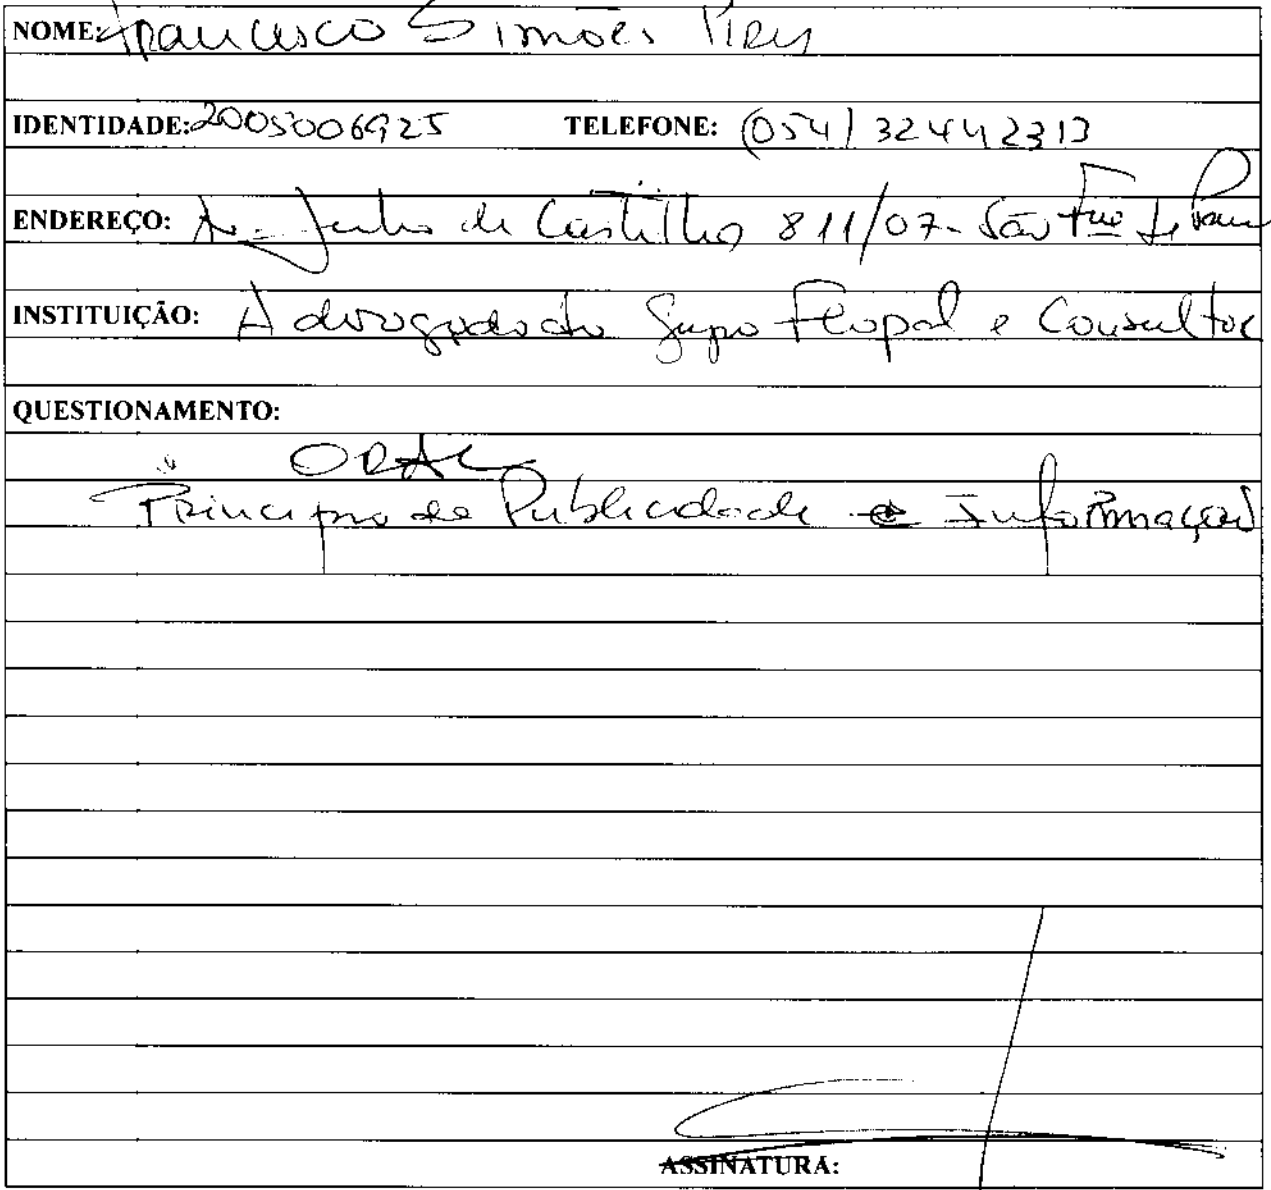 NOME: Francisco Simões Pires
IDENTIDADE: 2005006925 TELEFONE: (054) 32442313
ENDEREÇO: Av. Julio de Castilhos 811/07 - São Fco de Paula
INSTITUIÇÃO: Advogado do Grupo Flopal e Consultor
QUESTIONAMENTO:
ORAL
Principio da Publicidade e Informação
ASSINATURA: